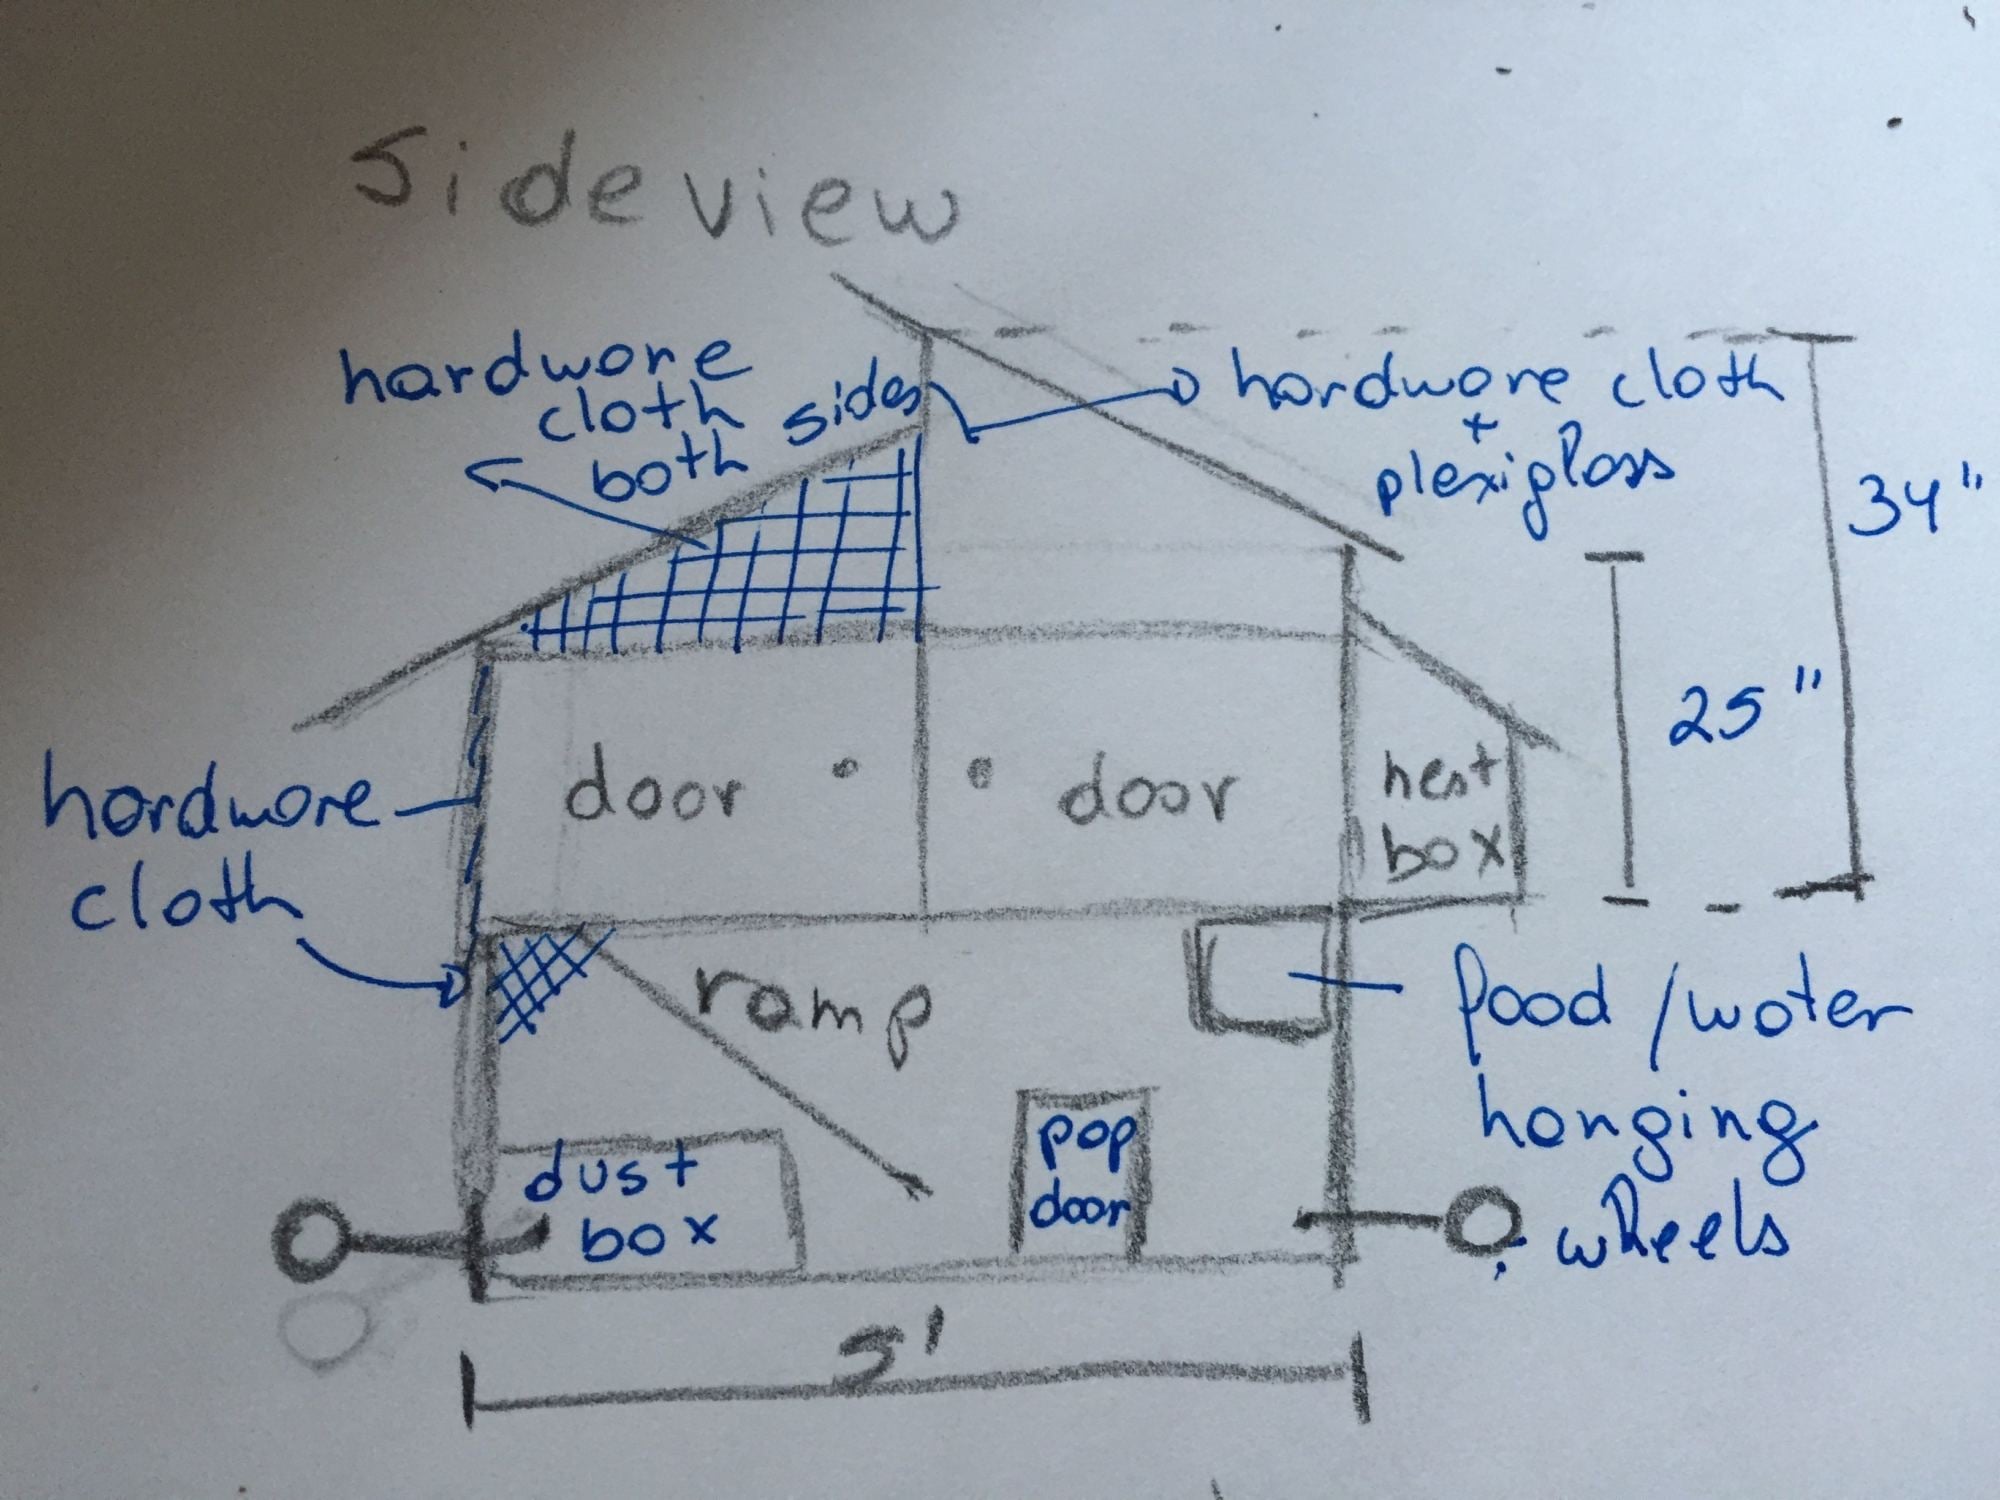 Side view
hardware
cloth
both sides
hardware cloth
+
plexiglass
34"
25"
hardware
cloth
door
door
nest
box
ramp
food / water
hanging
pop
door
dust
box
wheels
5'